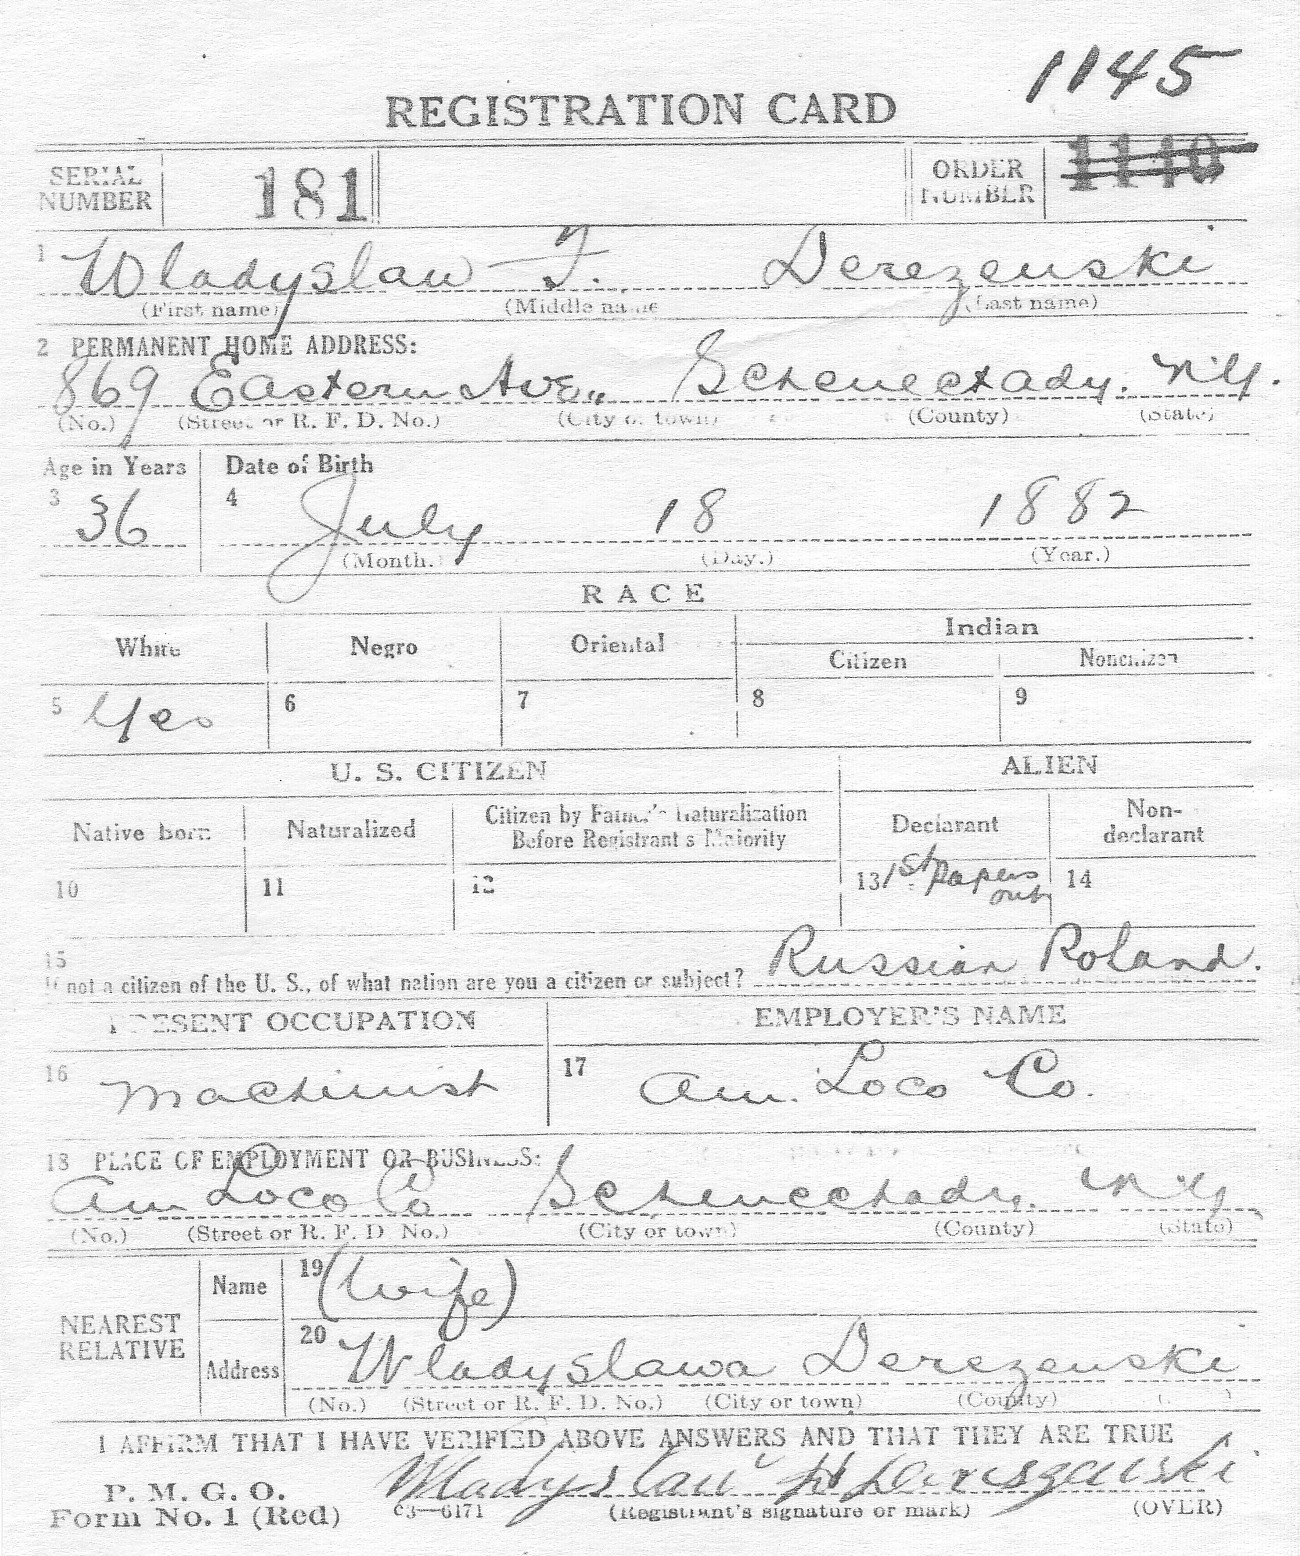 1145
REGISTRATION CARD
SERIAL NUMBER 181 ORDER NUMBER 1140
1 Wladyslaw F. Derezenski
(First name) (Middle name (Last name)
2 PERMANENT HOME ADDRESS:
869 Eastern Ave., Schenectady. N.Y.
(No.) (Street or R. F. D. No.) (City or town) (County) (State)
Age in Years Date of Birth
3 36 4 July 18 1882
(Month.) (Day.) (Year.)
RACE
White Negro Oriental Indian
Citizen Noncitizen
5 Yes 6 7 8 9
U. S. CITIZEN ALIEN
Native born Naturalized Citizen by Father's Naturalization Before Registrant's Majority Declarant Non-declarant
10 11 12 13 1st Papers out 14
15
If not a citizen of the U. S., of what nation are you a citizen or subject? Russian Poland.
PRESENT OCCUPATION EMPLOYER'S NAME
16 Machinist 17 Am. Loco Co.
18 PLACE OF EMPLOYMENT OR BUSINESS:
Am Loco Co Schenectady. N.Y.
(No.) (Street or R. F. D. No.) (City or town) (County) (State)
NEAREST RELATIVE
Name 19 (Wife)
Address 20 Wladyslawa Derezenski
(No.) (Street or R. F. D. No.) (City or town) (County)
I AFFIRM THAT I HAVE VERIFIED ABOVE ANSWERS AND THAT THEY ARE TRUE
P. M. G. O. Wladyslaw
Form No. 1 (Red) 03—6171 (Registrant's signature or mark) (OVER)